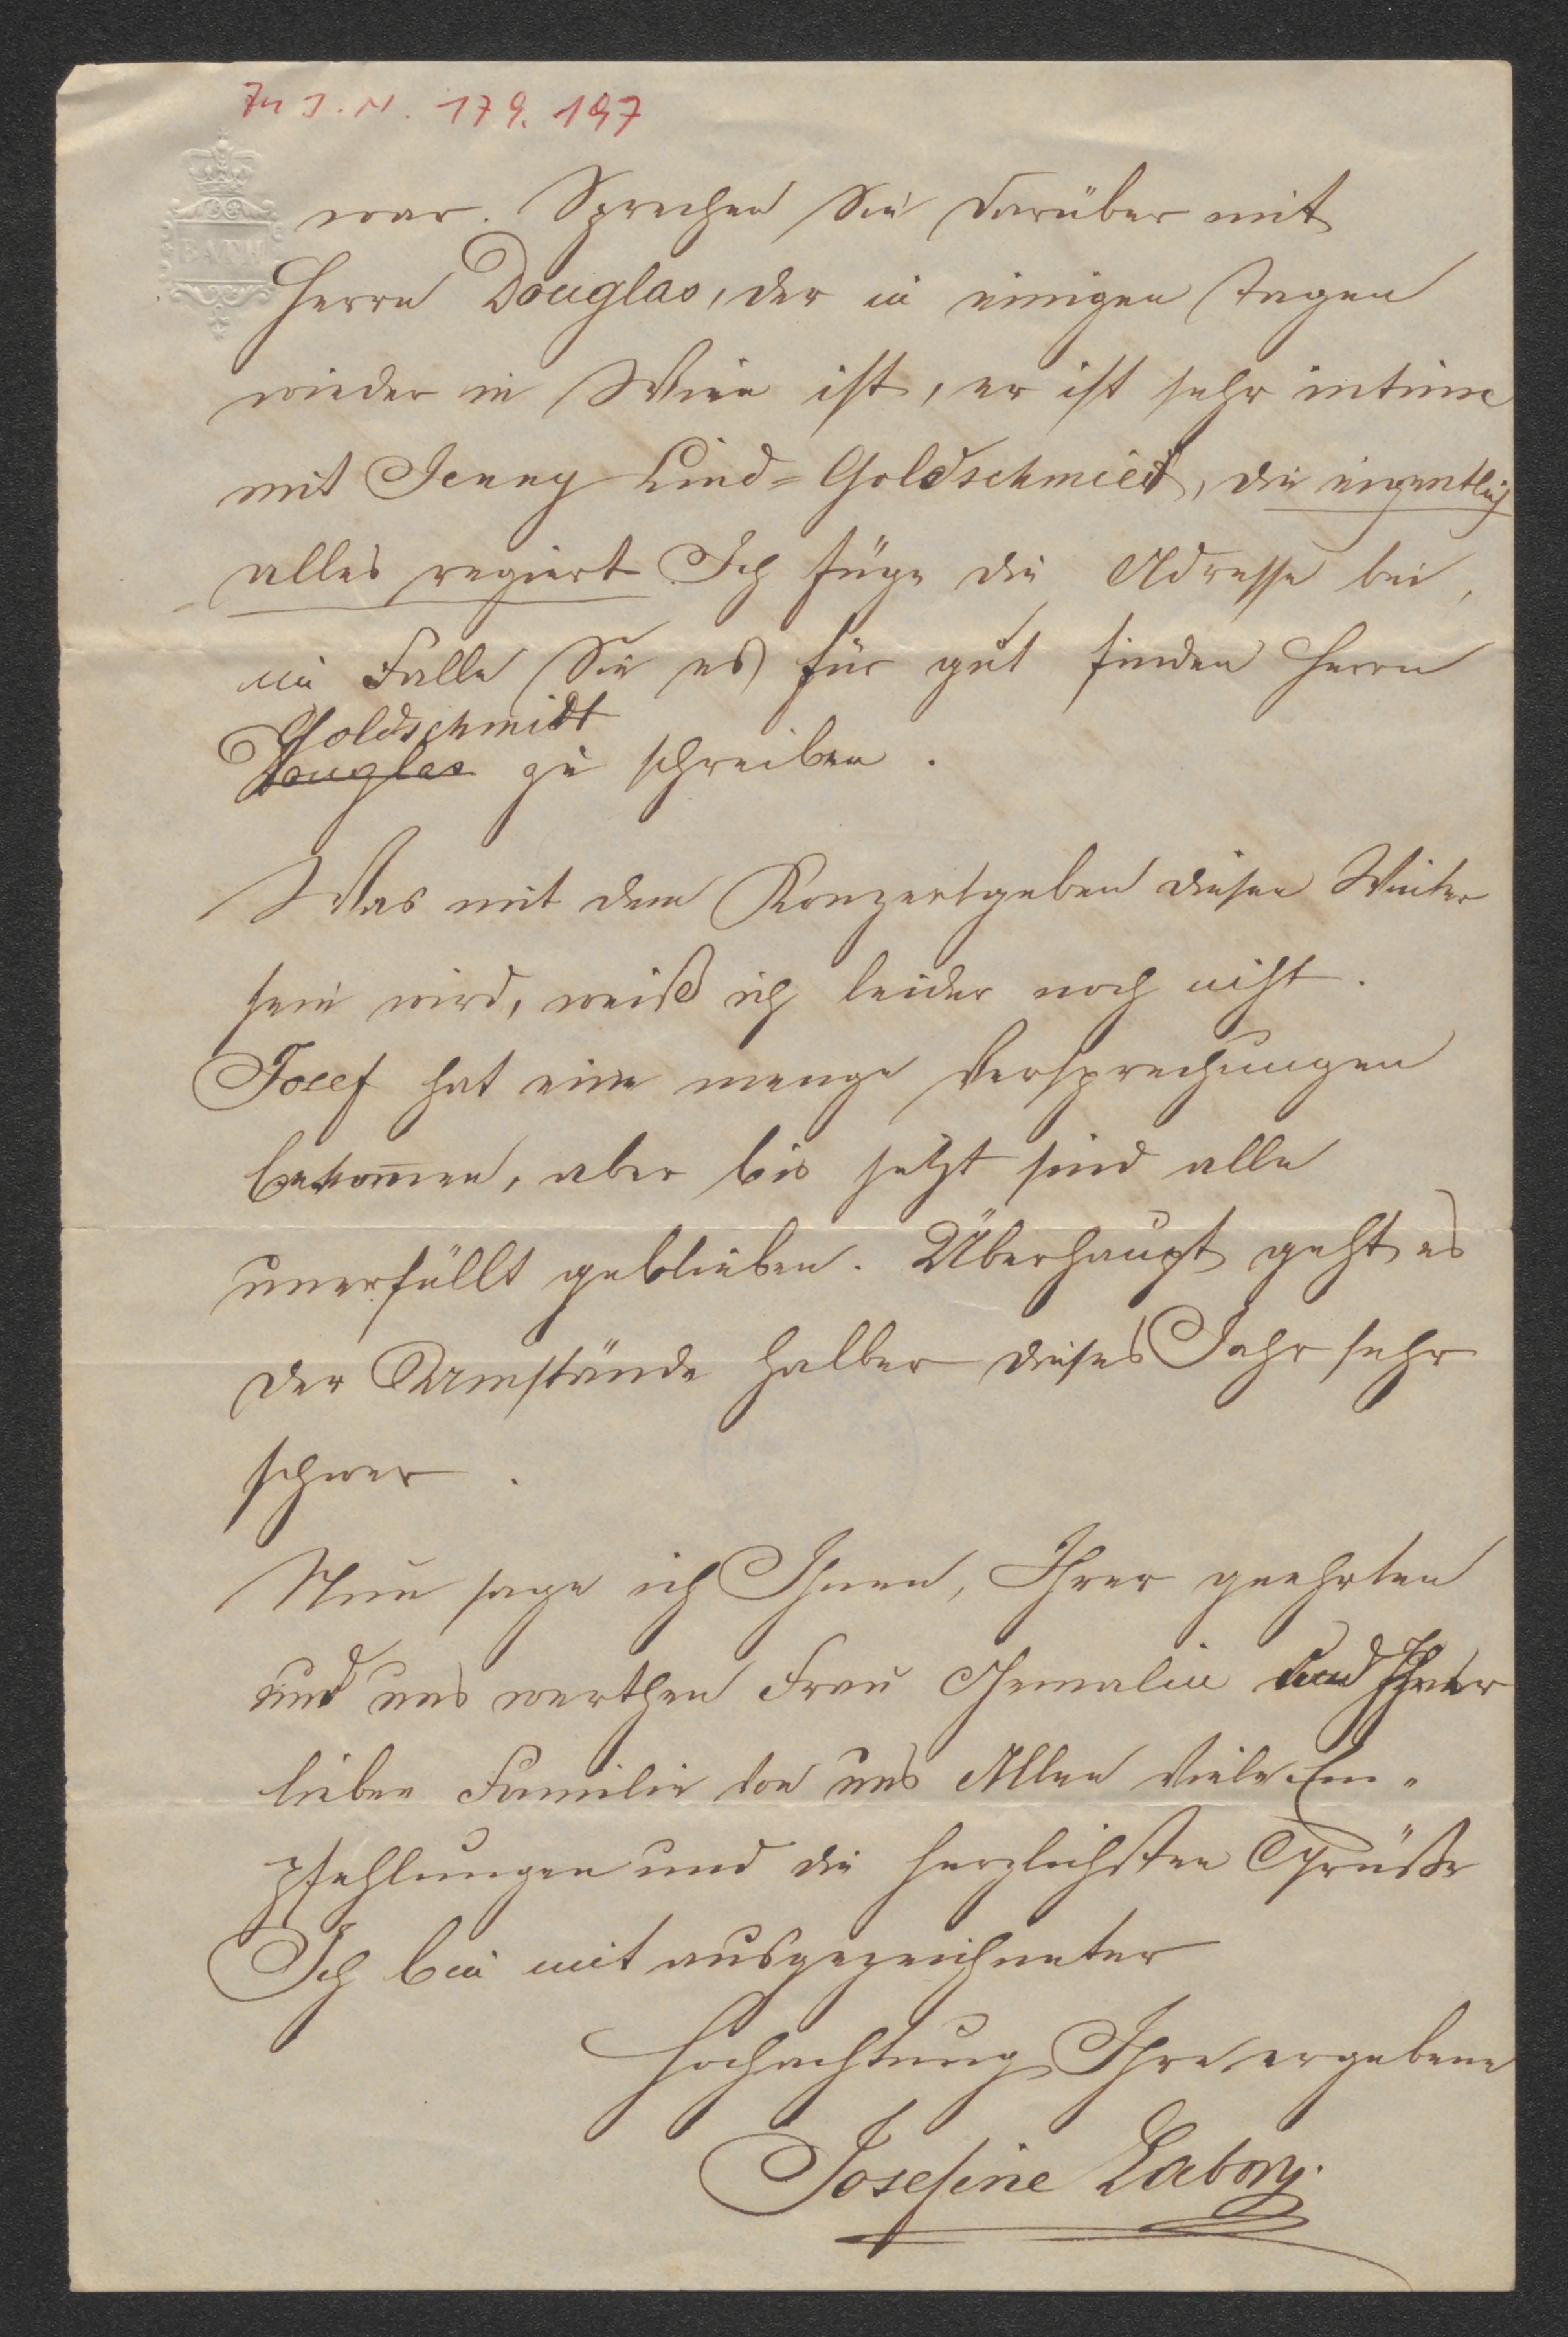 Zu J. N. 179.197
BATH
war. Sprechen Sie darüber mit
Herrn Douglas, der in einigen Tagen
wieder in Wien ist, er ist sehr intime
mit Jenny Lind-Goldschmied, die eigentlich
alles regiert Ich füge die Adresse bei,
im Falle Sie es für gut finden Herrn
Goldschmidt
Douglas zu schreiben.
Was mit dem Konzertgeben diesen Winter
sein wird, weiß ich leider noch nicht.
Josef hat eine menge Versprechungen
bekom̅en, aber bis jetzt sind alle
unerfüllt geblieben. Überhaupt geht es
der Umstände halber dieses Jahr sehr
schwer.
Nun sage ich Ihnen, Ihrer geehrten
und uns werthen Frau Gemalin und Ihrer
lieben Familie von uns Allen viele Em-
pfehlungen und die herzlichsten Grüße
Ich bin mit ausgezeichneter
Hochachtung Ihre ergebene
Josefine Labory.